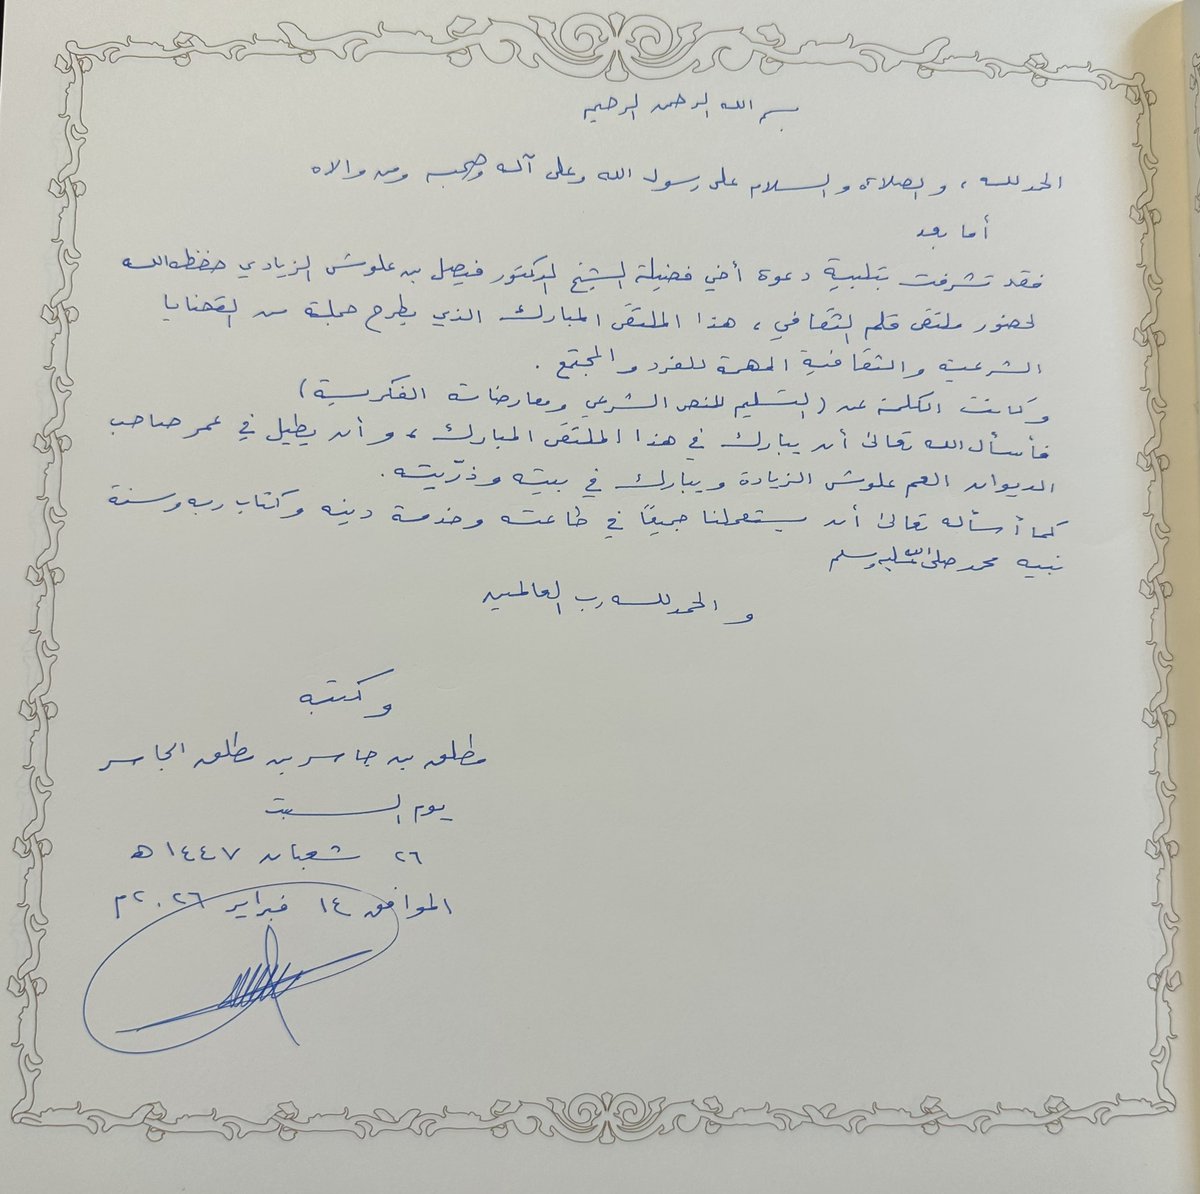 بسم الله الرحمن الرحيم
الحمد لله ، والصلاة والسلام على رسول الله وعلى آله وصحبه ومن والاه
أما بعد
فقد تشرفت بتلبية دعوة أخي فضيلة الشيخ الدكتور فيصل بن علوش الزيادي حفظه الله
لحضور ملتقى قلم الثقافي ، هذا الملتقى المبارك الذي يطرح جملة من القضايا
الشرعية والثقافية المهمة للفرد والمجتمع .
وكانت الكلمة عن (التسليم للنص الشرعي ومعارضاته الفكرية)
فأسأل الله تعالى أن يبارك في هذا الملتقى المبارك ، وأن يطيل في عمر صاحب
الديوان العم علوش الزيادة ويبارك في بيته وذرّيته .
كما أسأله تعالى أن يستعملنا جميعًا في طاعته وخدمة دينه وكتاب ربه وسنة
نبيه محمد صلى الله عليه وسلم
والحمد لله رب العالمين
وكتبه
مطلق بن جاسر بن مطلق الجاسر
يوم السبت
٢٦ شعبان ١٤٤٧هـ
الموافق ١٤ فبراير ٢٠٢٦م